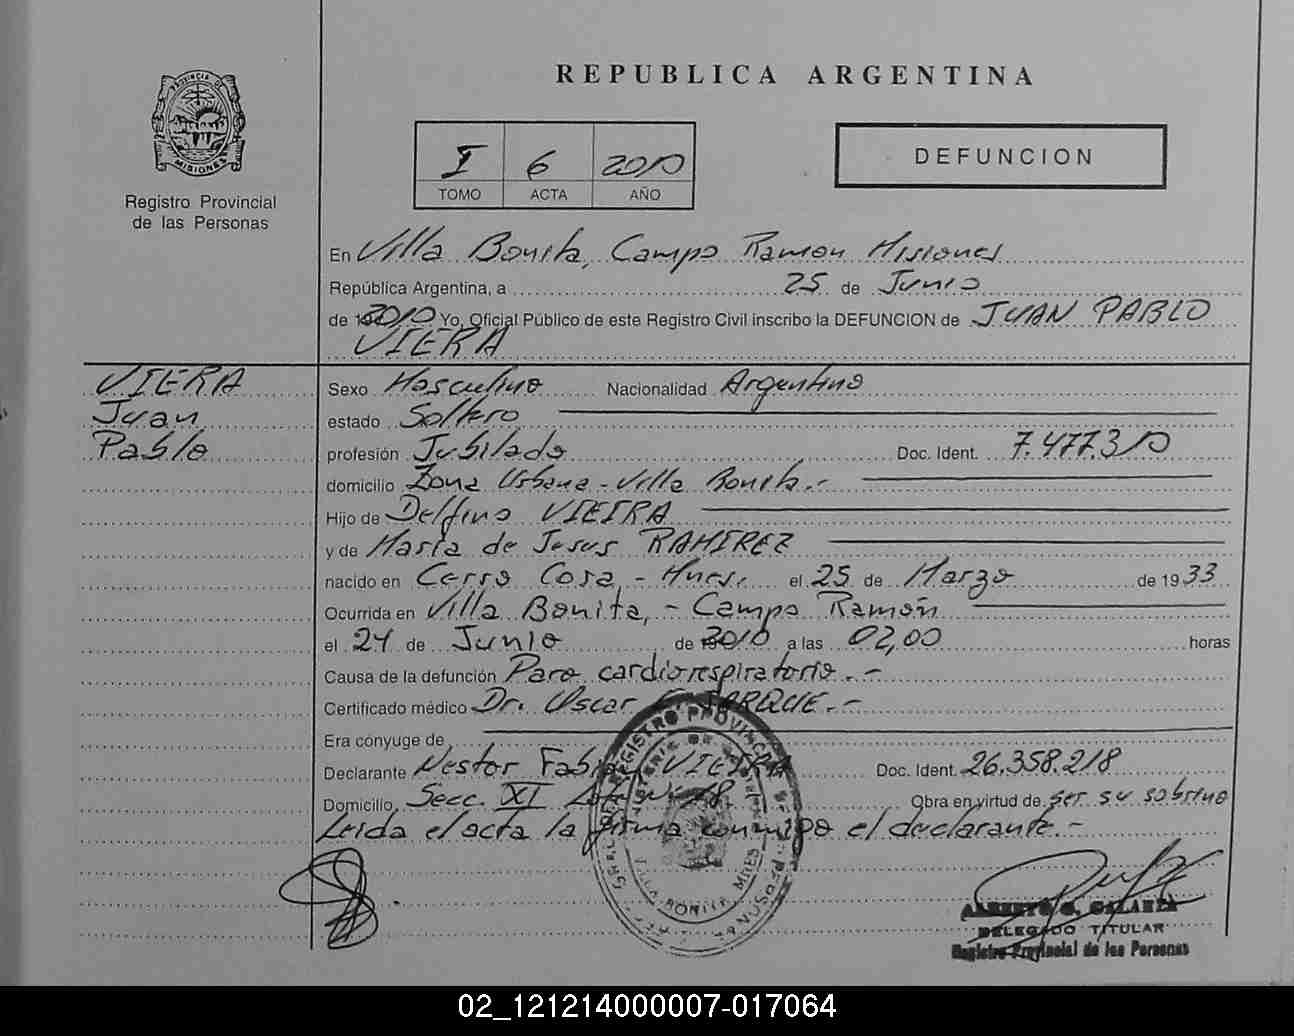 REPUBLICA ARGENTINA
PROVINCIA DE
MISIONES
Registro Provincial
de las Personas
I 6 2010
TOMO ACTA AÑO
DEFUNCION
En Villa Bonita, Campo Ramon Misiones
República Argentina, a 25 de Junio
de 2010 Yo, Oficial Público de este Registro Civil inscribo la DEFUNCION de JUAN PABLO
VIERA
VIERA
Juan
Pablo
Sexo Masculino Nacionalidad Argentino
estado Soltero
profesión Jubilado Doc. Ident. 7.477.310
domicilio Zona Urbana - Villa Bonita.-
Hijo de Delfino VIEIRA
y de María de Jesus RAMIREZ
nacido en Cerro Cora, - Mnes, el 25 de Marzo de 1933
Ocurrida en Villa Bonita, - Campo Ramón
el 24 de Junio de 2010 a las 02,00 horas
Causa de la defunción Paro cardiorespiratorio.-
Certificado médico Dr. Oscar
Era cónyuge de
Declarante Nestor Fabian VIEIRA Doc. Ident. 26.358.218
Domicilio Secc. XI Lote Nº 18 Obra en virtud de ser su sobrino
Leida el acta la firma conmigo el declarante.-
REGISTRO PROVINCIAL DE
VILLA BONITA, MNES
ALBERTO G. GALARZA
DELEGADO TITULAR
Registro Provincial de las Personas
02_121214000007-017064